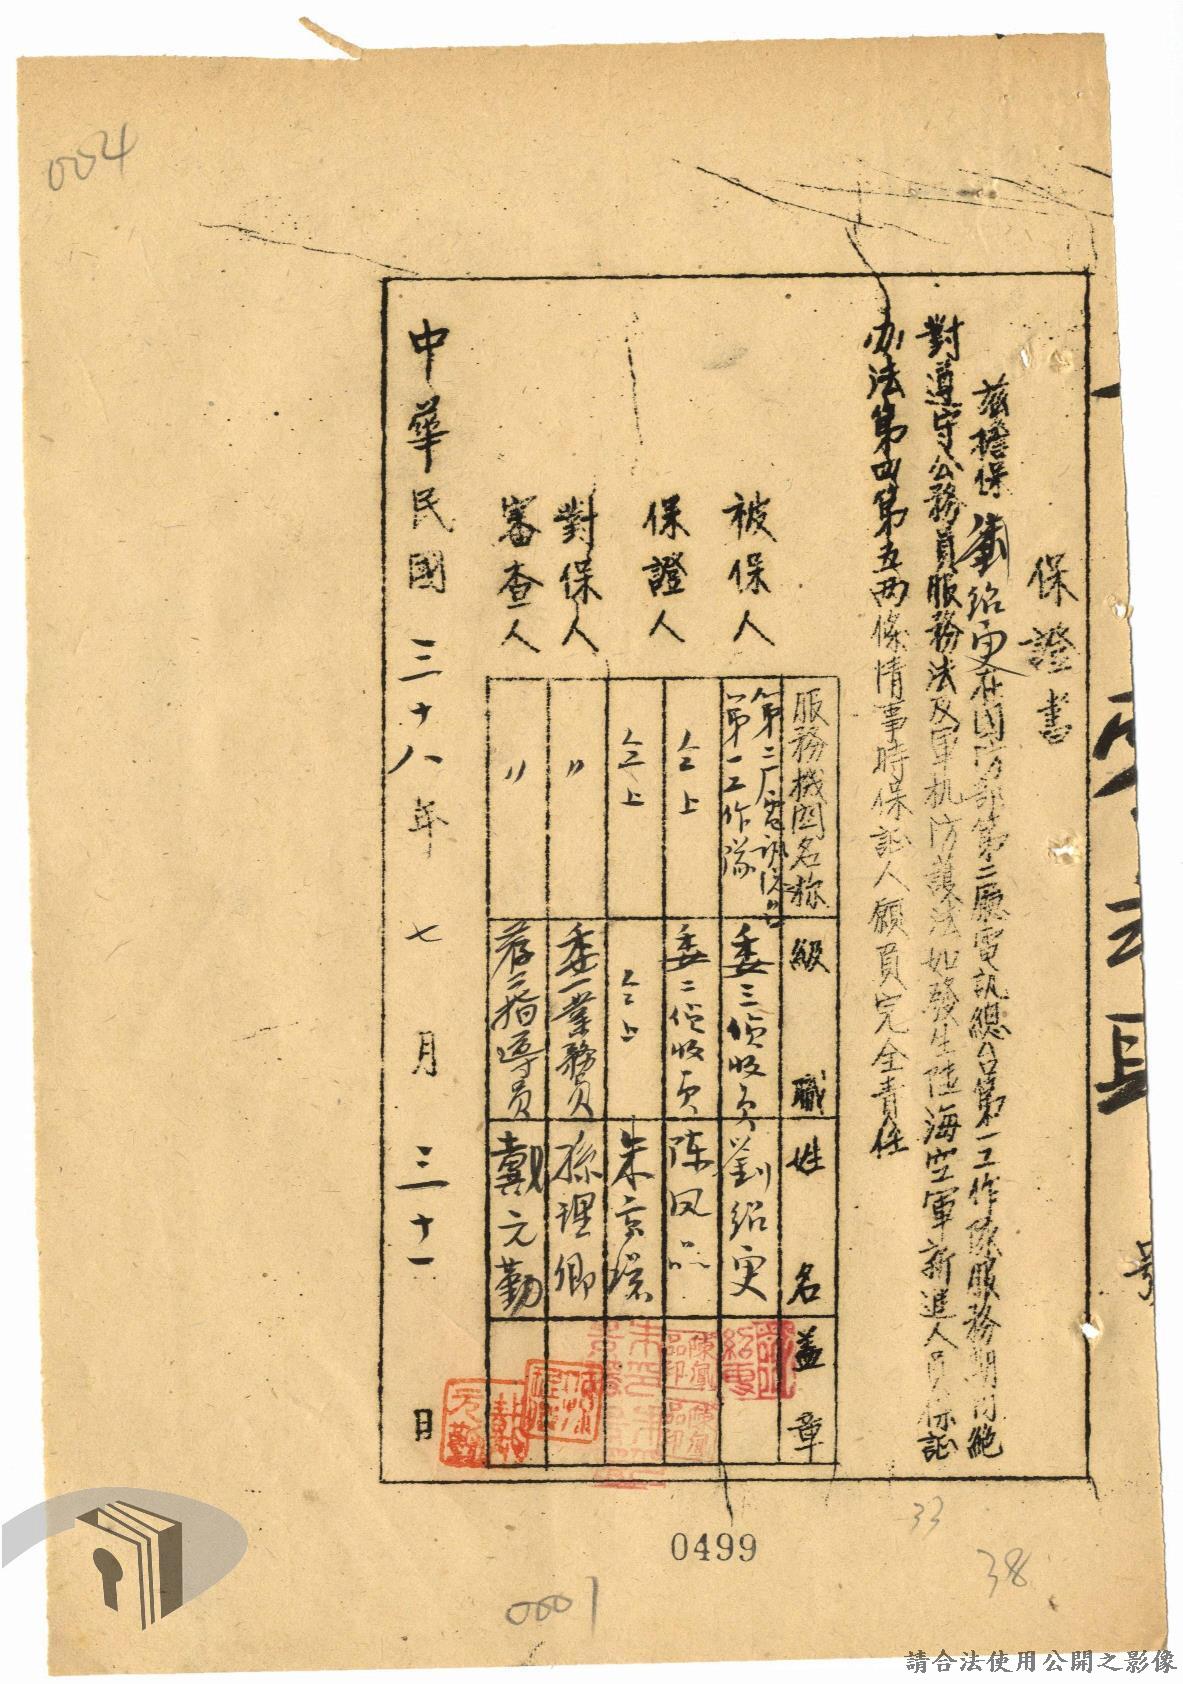 004
保證書
茲擔保劉紹更在國防部第二廳電訊總台第一工作隊服務期間絕
對遵守公務員服務法及軍机防護法如發生陸海空軍新進人員保証
办法第四第五兩條情事時保証人願負完全責任
服務機関名称 級職 姓名 蓋章
被保人 第二厂電訊总台第一工作隊 委三偵收員 劉紹更
保證人 仝上 委二偵收員 陈凤品
仝上 仝上 朱京環
對保人 〃 委一業務員 孫理卿
審查人 〃 荐二指導員 戴元勤
中華民國三十八年七月三十一日
號
0499
0001
33
38
請合法使用公開之影像